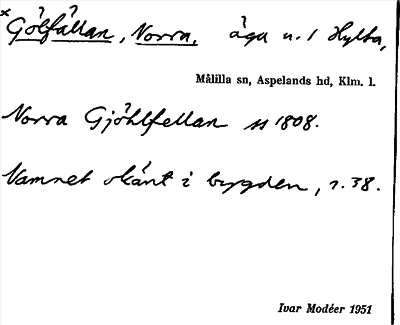 × Gölfällan, Norra, äga n. 1 Hylta,
Målilla sn, Aspelands hd, Klm. l.
Norra Gjöhlfellan ss 1808.
Namnet okänt i bygden, r. 38.
Ivar Modéer 1951